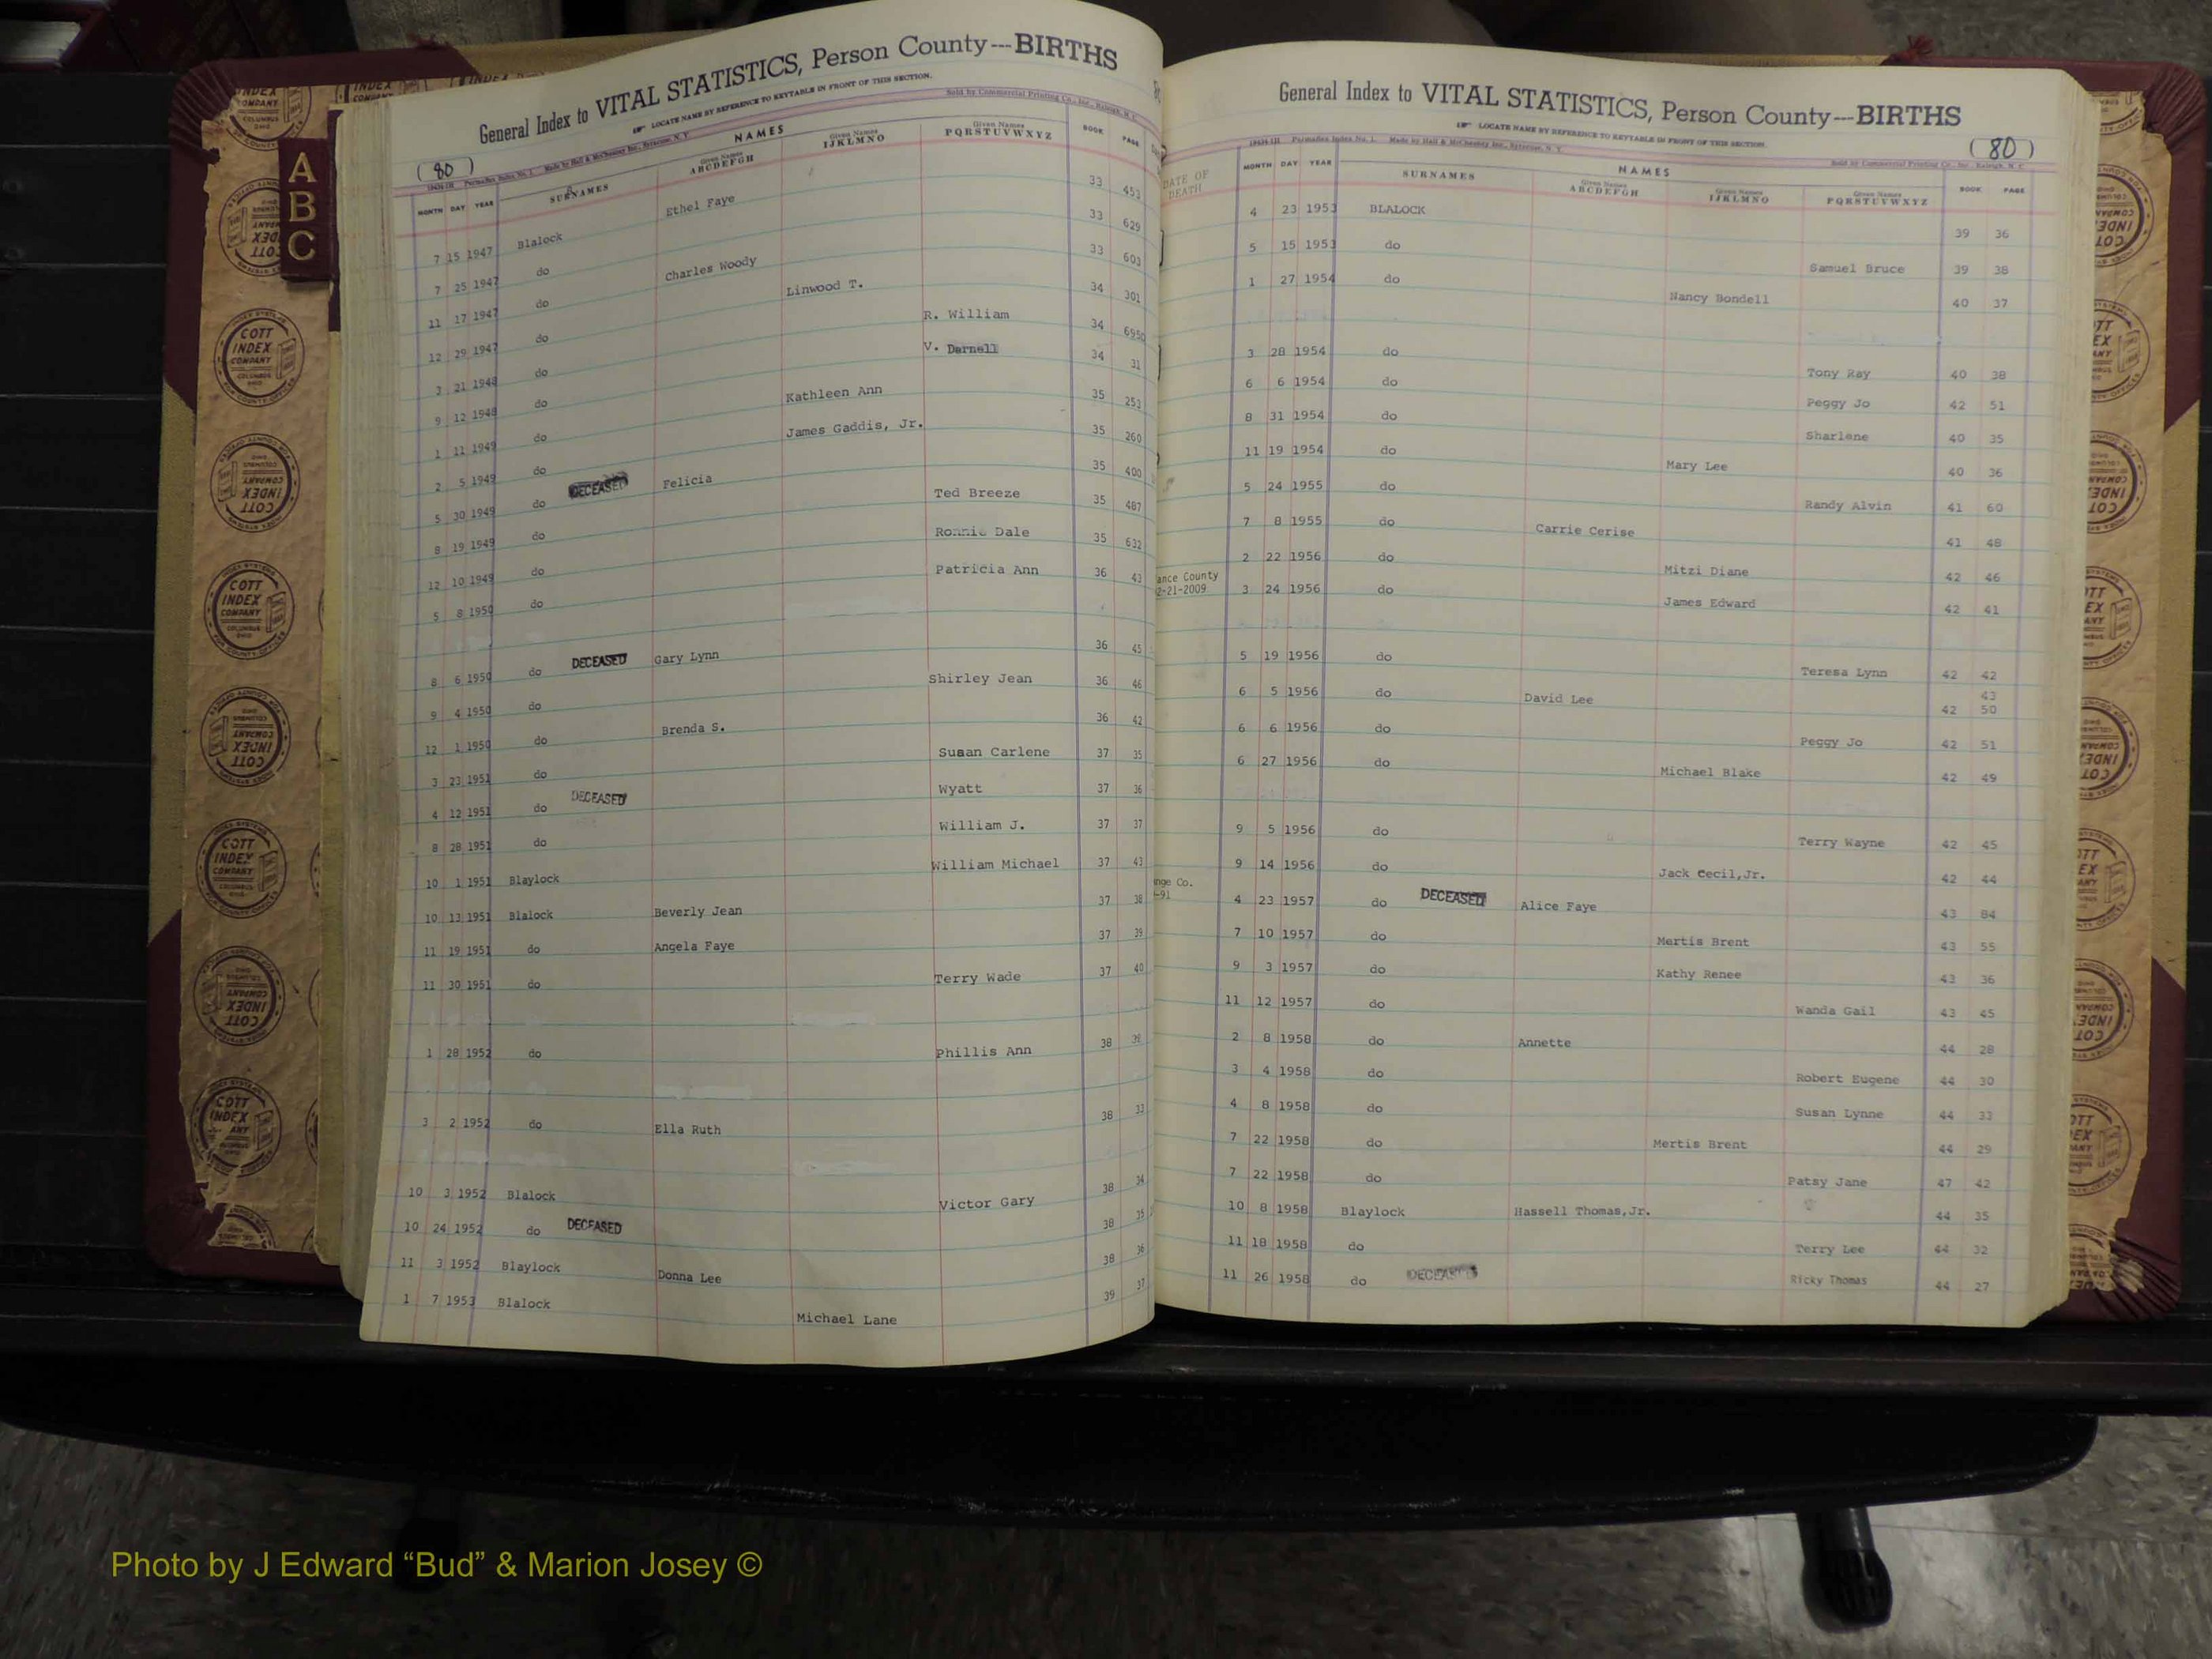 General Index to VITAL STATISTICS, Person County---BIRTHS
LOCATE NAME BY REFERENCE TO KEYTABLE IN FRONT OF THIS SECTION.
( 80 )
Sold by Commercial Printing Co., Inc., Raleigh, N. C.
MONTH DAY YEAR SURNAMES NAMES Given Names ABCDEFGH Given Names IJKLMNO Given Names PQRSTUVWXYZ BOOK PAGE
7 15 1947 Blalock Ethel Faye 33 453
7 25 1947 do Charles Woody 33 629
11 17 1947 do Linwood T. 33 603
12 29 1947 do R. William 34 301
3 21 1948 do V. Darnell 34 695
9 12 1948 do Kathleen Ann 34 31
1 11 1949 do James Gaddis, Jr. 35 253
2 5 1949 do 35 260
5 30 1949 do DECEASED Felicia 35 400
8 19 1949 do Ted Breeze 35 487
12 10 1949 do Ronnie Dale 35 632
5 8 1950 do Patricia Ann 36 43
8 6 1950 do DECEASED Gary Lynn 36 45
9 4 1950 do Shirley Jean 36 46
12 1 1950 do Brenda S. 36 42
3 23 1951 do Susan Carlene 37 35
4 12 1951 do DECEASED Wyatt 37 36
8 28 1951 do William J. 37 37
10 1 1951 Blaylock William Michael 37 43
10 13 1951 Blalock Beverly Jean 37 38
11 19 1951 do Angela Faye 37 39
11 30 1951 do Terry Wade 37 40
1 28 1952 do Phillis Ann 38
3 2 1952 do Ella Ruth 38 33
10 3 1952 Blalock Victor Gary 38 34
10 24 1952 do DECEASED 38 35
11 3 1952 Blaylock Donna Lee 38 36
1 7 1953 Blalock Michael Lane 39 37
General Index to VITAL STATISTICS, Person County---BIRTHS
LOCATE NAME BY REFERENCE TO KEYTABLE IN FRONT OF THIS SECTION.
( 80 )
Made by Hall & McChesney Inc., Syracuse, N. Y.
Sold by Commercial Printing Co., Inc., Raleigh, N. C.
DATE OF DEATH MONTH DAY YEAR SURNAMES NAMES Given Names ABCDEFGH Given Names IJKLMNO Given Names PQRSTUVWXYZ BOOK PAGE
4 23 1953 BLALOCK 39 36
5 15 1953 do Samuel Bruce 39 38
1 27 1954 do Nancy Bondell 40 37
3 28 1954 do Tony Ray 40 38
6 6 1954 do Peggy Jo 42 51
8 31 1954 do Sharlene 40 35
11 19 1954 do Mary Lee 40 36
5 24 1955 do Randy Alvin 41 60
7 8 1955 do Carrie Cerise 41 48
2 22 1956 do Mitzi Diane 42 46
ance County
2-21-2009 3 24 1956 do James Edward 42 41
5 19 1956 do Teresa Lynn 42 42
43
6 5 1956 do David Lee 42 50
6 6 1956 do Peggy Jo 42 51
6 27 1956 do Michael Blake 42 49
9 5 1956 do Terry Wayne 42 45
9 14 1956 do Jack Cecil,Jr. 42 44
nge Co.
-91 4 23 1957 do DECEASED Alice Faye 43 84
7 10 1957 do Mertis Brent 43 55
9 3 1957 do Kathy Renee 43 36
11 12 1957 do Wanda Gail 43 45
2 8 1958 do Annette 44 28
3 4 1958 do Robert Eugene 44 30
4 8 1958 do Susan Lynne 44 33
7 22 1958 do Mertis Brent 44 29
7 22 1958 do Patsy Jane 47 42
10 8 1958 Blaylock Hassell Thomas,Jr. 44 35
11 18 1958 do Terry Lee 44 32
11 26 1958 do DECEASED Ricky Thomas 44 27
A
B
C
COTT
INDEX
COMPANY
COLUMBUS
OHIO
Photo by J Edward “Bud” & Marion Josey ©